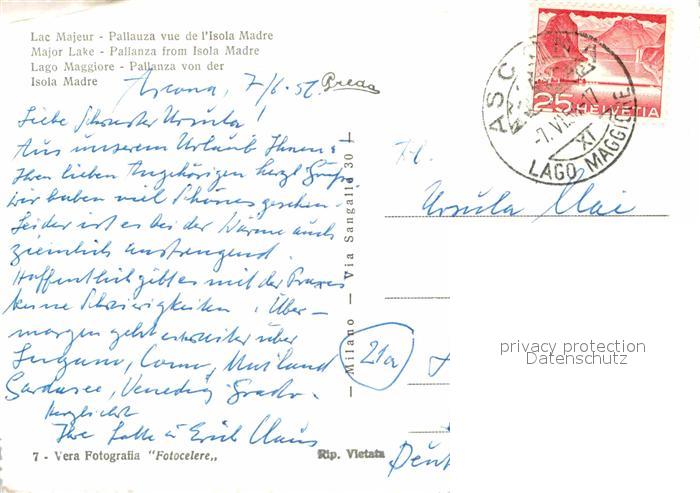 Lac Majeur - Pallauza vue de l'Isola Madre
Major Lake - Pallanza from Isola Madre
Lago Maggiore - Pallanza von der
Isola Madre
Ascona, 7/6.
Preda
Liebe Schwester Ursula!
Aus unserem Urlaub Ihnen &
Ihren lieben Angehörigen herzl. Grüße
wir haben viel Schönes gesehen.
Leider ist es bei der Wärme auch
ziemlich anstrengend.
Hoffentlich gibt es mit der Praxis
keine Schwierigkeiten. Über-
morgen geht es weiter über
Lugano, Como, Mailand
Gardasee, Venedig
Herzlichst
Ihre Lotte u Erich Claus
7 - Vera Fotografia "Fotocelere„
Rip. Vietata
— Milano — Via Sangallo 30 —
25 HELVETIA
ASCONA
-7.VI.
XI
LAGO MAGGIORE
Frl.
Ursula
21a
privacy protection
Datenschutz